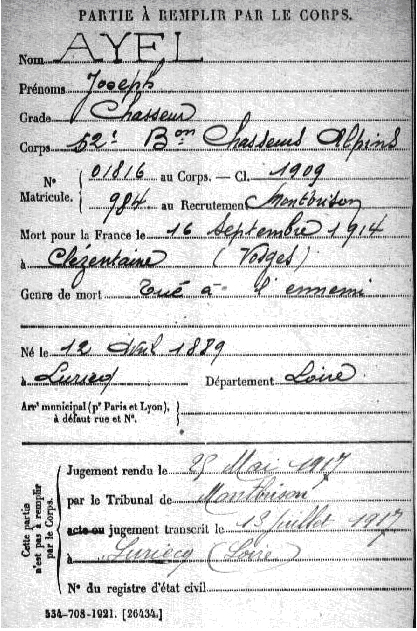 PARTIE À REMPLIR PAR LE CORPS.
Nom AYEL
Prénoms Joseph
Grade Chasseur
Corps 52e Bon Chasseurs Alpins
No Matricule. { 01816 au Corps. — Cl. 1909
984 au Recrutement Montbrison
Mort pour la France le 16 Septembre 1914
à Clézentaine (Vosges)
Genre de mort Tué à l'ennemi
Né le 12 Avril 1889
à Luriecq Département Loire
Arrt municipal (pr Paris et Lyon),
à défaut rue et No.
Cette partie n'est pas à remplir par le Corps.
Jugement rendu le 25 Mai 1917
par le Tribunal de Montbrison
acte ou jugement transcrit le 13 juillet 1917
à Luriecq (Loire)
No du registre d'état civil
534-708-1921. [26434.]